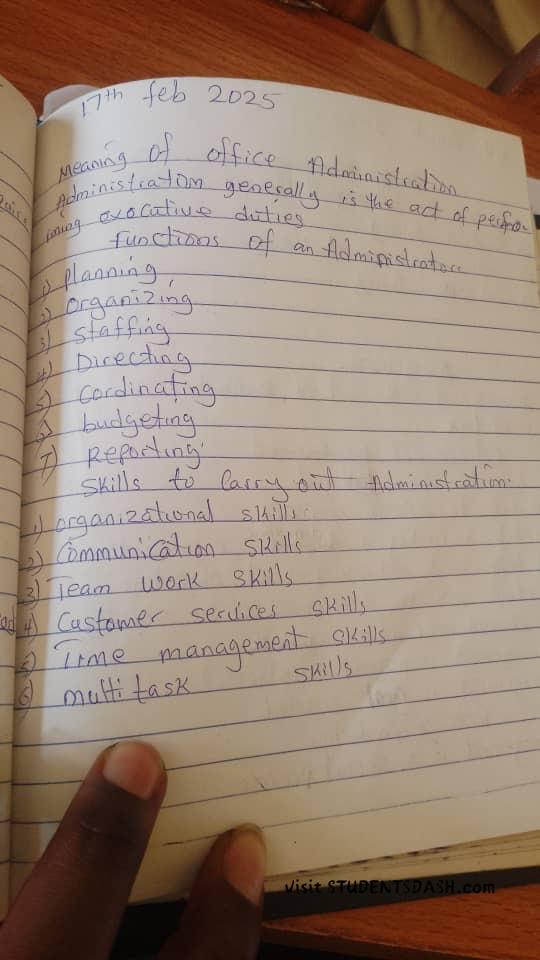 17th feb 2025
Meaning of office Administration
Administration generally is the act of perfo-
rming exocative duties
functions of an Administrator
1) Planning
2) organizing
3) Staffing
4) Directing
5) Cordinating
6) budgeting
7) Reporting
Skills to Carry out Administration.
1) organizational skills
2) Communication skills
3) Team work skills
4) Customer services skills
5) Time management skills
6) multi task skills
visit STUDENTSDASH.com